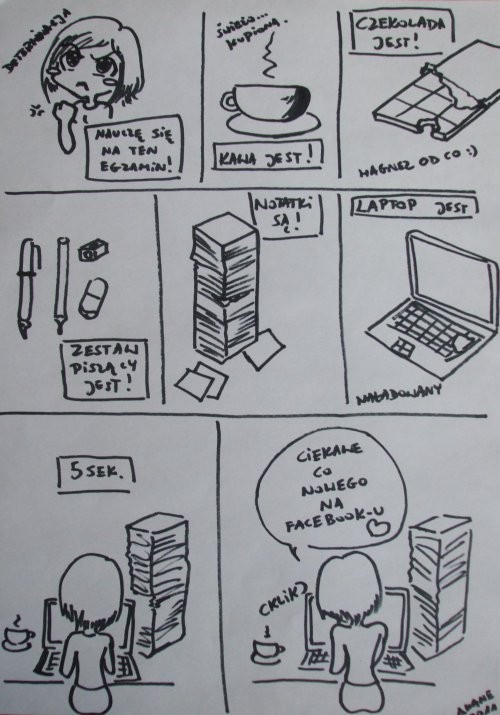 DETERMINACJA
NAUCZĘ SIĘ
NA TEN
EGZAMIN!
ŚWIEŻO...
KUPIONA.
KAWA JEST!
CZEKOLADA
JEST!
MAGNEZ OD CO :)
ZESTAW
PISZĄCY
JEST!
NOTATKI
SĄ!
LAPTOP JEST
NAŁADOWANY
5 SEK.
CIEKAWE
CO
NOWEGO
NA
FACEBOOK-U
(KLIK)